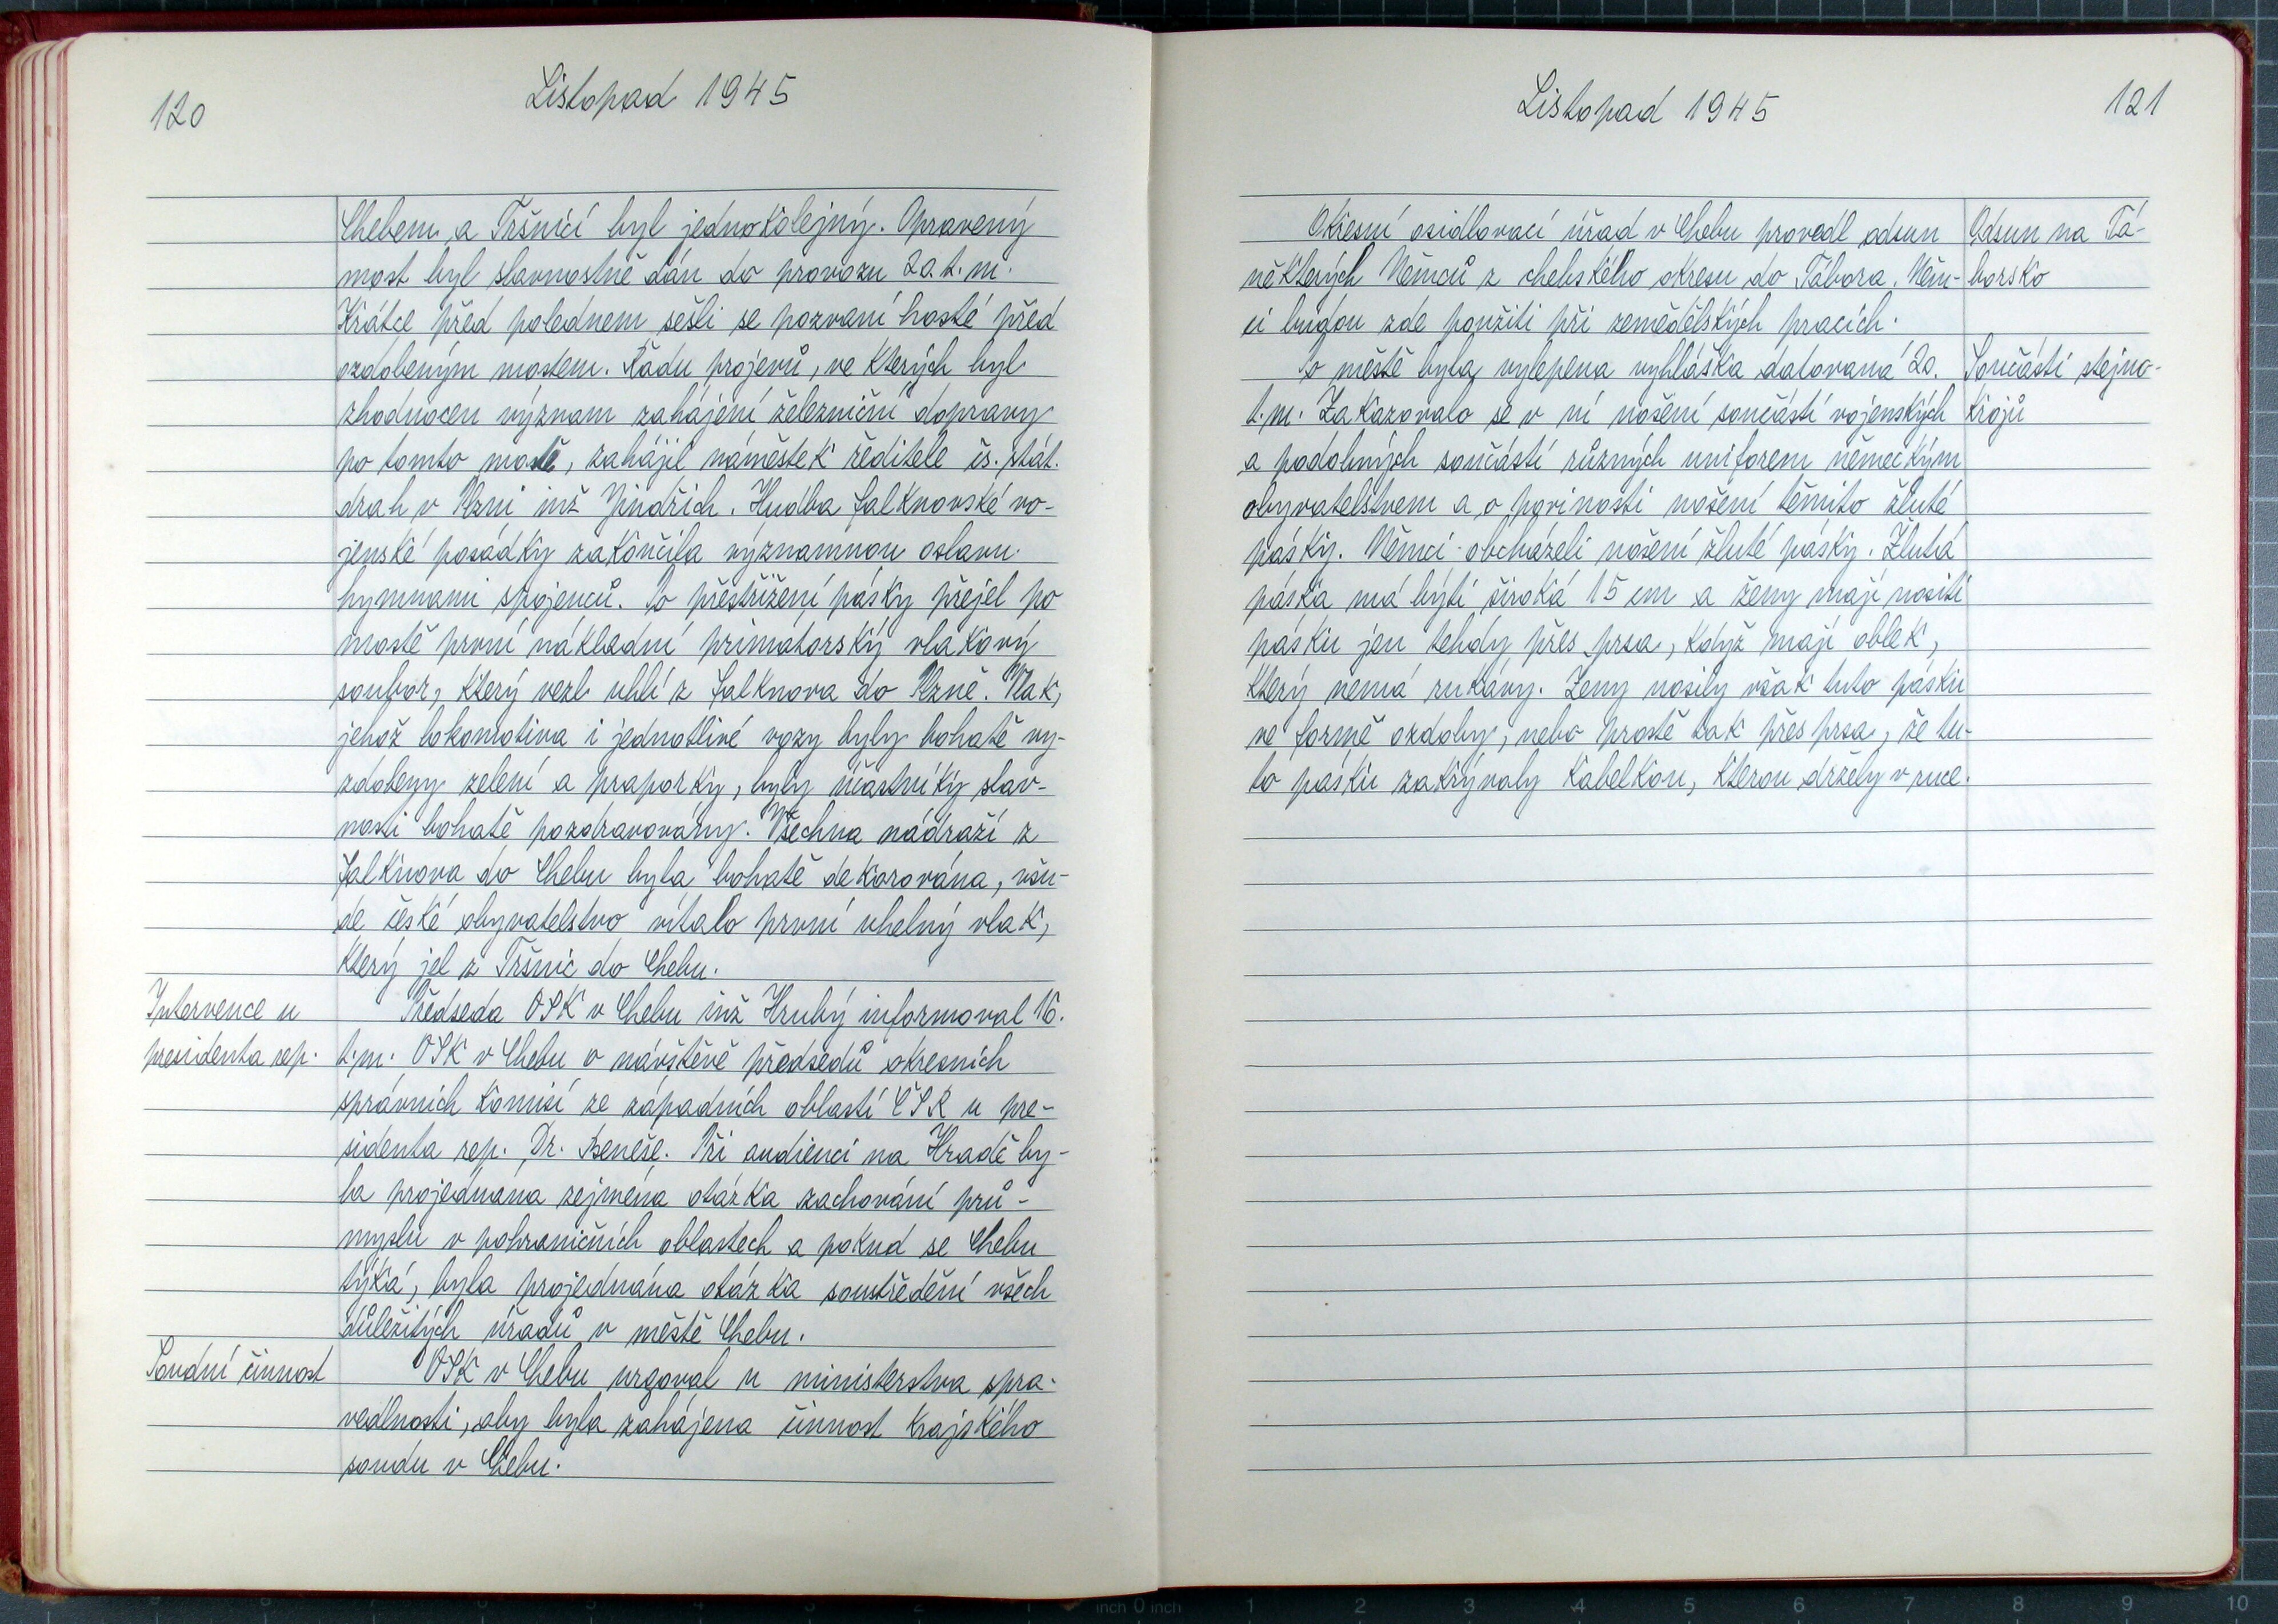 120
Listopad 1945
Chebem a Tršnicí byl jednokolejný. Opravený
most byl slavnostně dán do provozu 20. t. m.
Krátce před polednem sešli se pozvaní hosté před
ozdobeným mostem. Řadu projevů, ve kterých byl
zhodnocen význam zahájení železniční dopravy
po tomto mostě, zahájil náměstek ředitele čs. stát.
drah v Plzni inž Jindřich. Hudba falknovské vo-
jenské posádky zakončila významnou oslavu
hymnami spojenců. Po přestřižení pásky přejel po
mostě první nákladní primátorský vlakový
soubor, který vezl uhlí z Falknova do Plzně. Vlak,
jehož lokomotiva i jednotlivé vozy byly bohatě vy-
zdobeny zelení a praporky, byly účastníky slav-
nosti bohatě pozdravovány. Všechna nádraží z
Falknova do Chebu byla bohatě dekorována, všu-
de české obyvatelstvo vítalo první uhelný vlak,
který jel z Tršnic do Chebu.
Intervence u
presidenta rep.
Předseda OSK v Chebu inž Hrubý informoval 16.
t. m. OSK v Chebu o návštěvě předsedů okresních
správních komisí ze západních oblastí ČSR u pre-
sidenta rep. Dr. Beneše. Při audienci na Hradě by-
la projednána zejména otázka zachování prů-
myslu v pohraničních oblastech a pokud se Chebu
týká, byla projednána otázka soustředění všech
důležitých úřadů v městě Chebu.
Soudní činnost
OSK v Chebu urgoval u ministerstva spra-
vedlnosti, aby byla zahájena činnost krajského
soudu v Chebu.
Listopad 1945
121
Okresní osidlovací úřad v Chebu provedl odsun
některých Němců z chebského okresu do Tábora. Něm-
ci budou zde použiti při zemědělských pracích.
Odsun na Tá-
borsko
Po městě byla vylepena vyhláška datovaná 20.
t. m. Zakazovalo se v ní nošení součástí vojenských
a podobných součástí různých uniforem německým
obyvatelstvem a o povinosti nošení těmito žluté
pásky. Němci obcházeli nošení žluté pásky. Žlutá
páska má býti široká 15 cm a ženy mají nositi
pásku jen tehdy přes prsa, když mají oblek,
který nemá rukávy. Ženy nosily však tuto pásku
ve formě ozdoby, nebo prostě tak přes prsa, že tu-
to pásku zakrývaly kabelkou, kterou držely v ruce.
Součásti stejno-
krojů
inch 0 inch
1 2 3 4 5 6 7 8 9 10